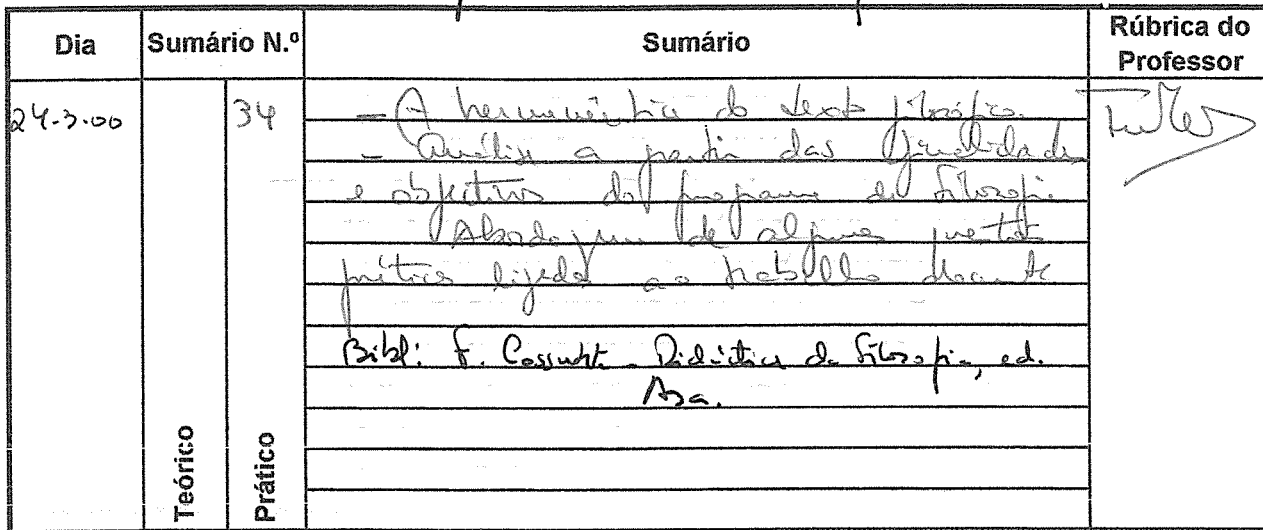 Dia Sumário N.º Sumário Rúbrica do Professor
24-3-00 34 - A hermenêutica do texto filosófico.
- Análise a partir das finalidades
e objectivos do programa de Filosofia.
Abordagem de algumas questões
práticas ligadas ao trabalho docente
Bibl: F. Cossutta - Didáctica da Filosofia, ed.
Asa.
Teórico
Prático